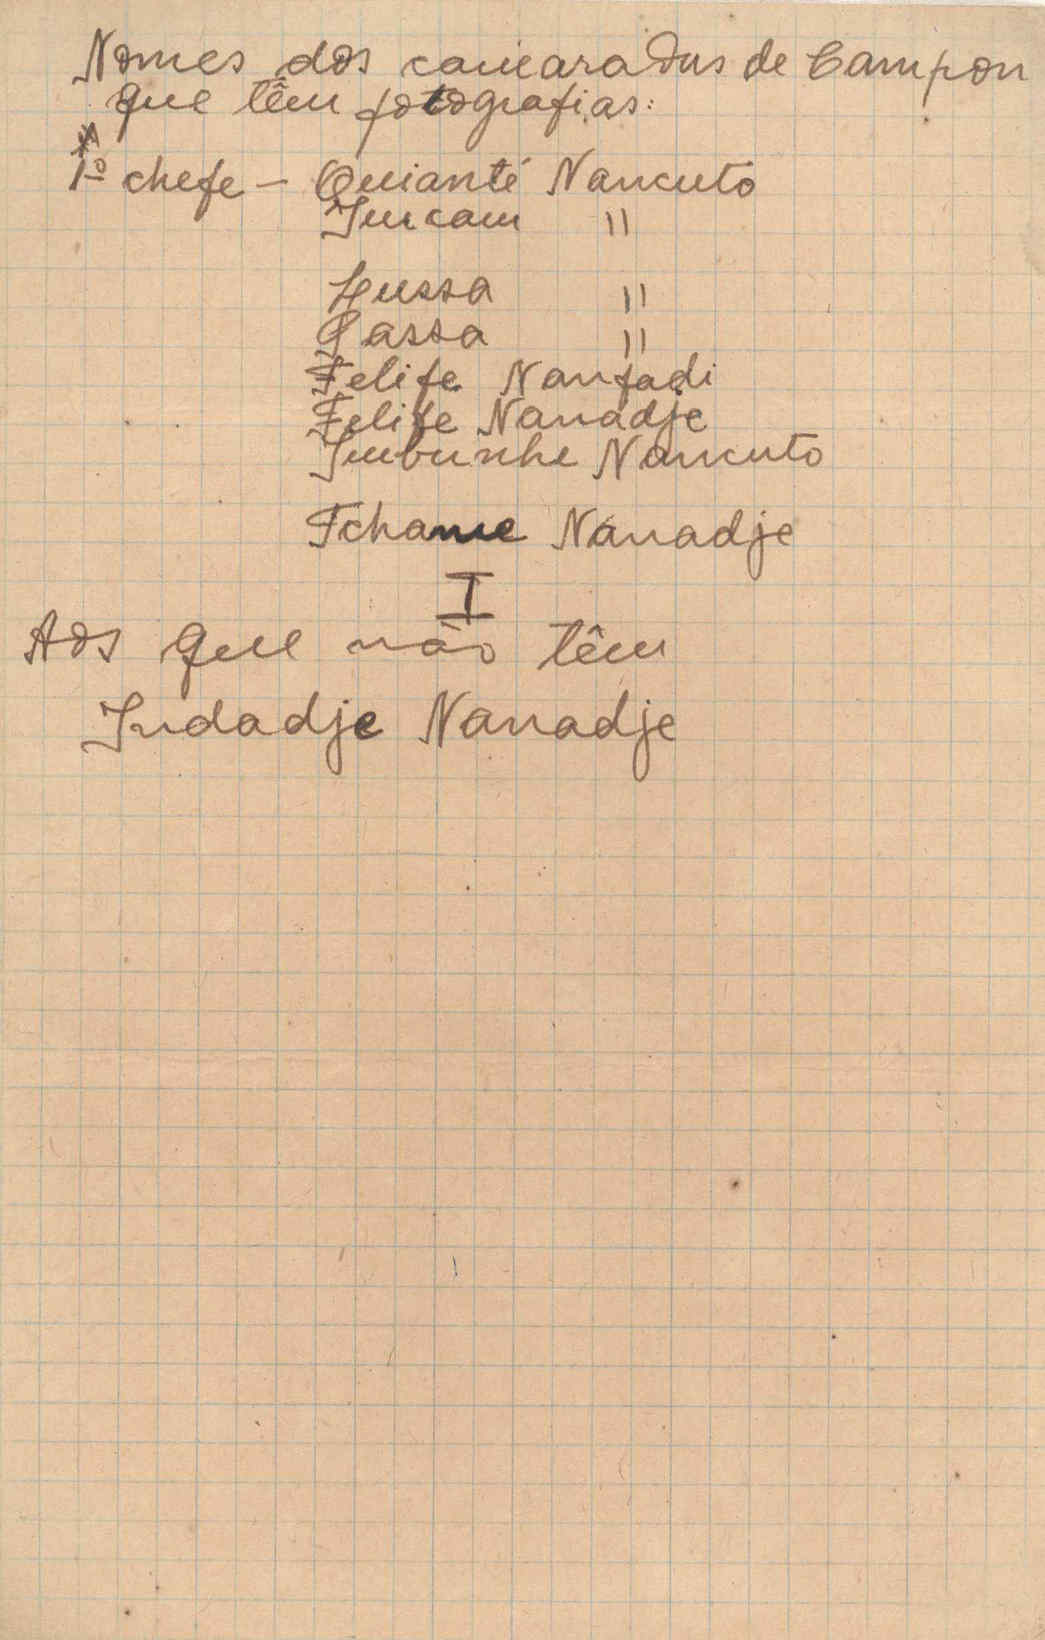 Nomes dos camaradas de Campon
que têm fotografias:
1º chefe - Quianté Nancuto
Imcam "
Hussa "
Passa "
Felife Nanfadi
Felife Nanadje
Imbunhe Nancuto
Tchame Nanadje
I
Aos que não têm
Indadje Nanadje